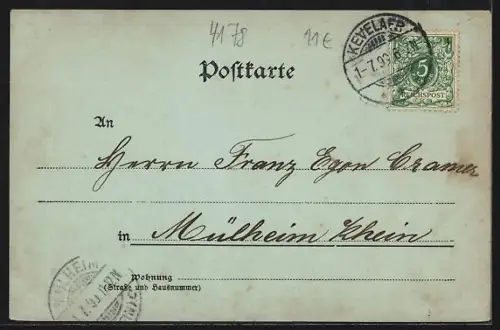 4178 11€
KEVELAER
1-7.99.
5
REICHSPOST
Postkarte
An
Herrn Franz Egon Cramer
in Mülheim Rhein
Wohnung
(Straße und Hausnummer)
MÜLHEIM